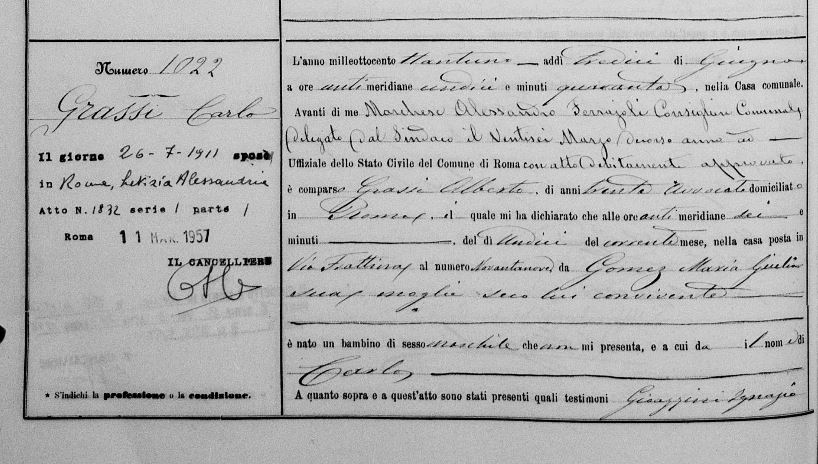 Numero 1022
Grassi Carlo
Il giorno 26-7-1911 sposò
in Roma, Letizia Alessandria
Atto N. 1832 serie 1 parte 1
Roma 11 MAR. 1957
IL CANCELLIERE
* S'indichi la professione o la condizione.
L'anno milleottocento ttantuno — addì tredici di Giugno
a ore anti meridiane undici e minuti quaranta, nella Casa comunale.
Avanti di me Marchese Alessandro Ferrajoli Consigliere Comunale
delegato dal Sindaco il Ventisei Marzo decorso anno ad —
Uffiziale dello Stato Civile del Comune di Roma con atto debitamente approvato,
è comparso Grassi Alberto, di anni trenta avvocato domiciliato
in Roma, il quale mi ha dichiarato che alle ore anti meridiane sei e
minuti —, del dì undici del corrente mese, nella casa posta in
Via Frattina al numero Novantanove da Gomez Maria Giulia
sua moglie seco lui convivente —
è nato un bambino di sesso maschile che non mi presenta, e a cui da il nome di
Carlo —
A quanto sopra e a quest'atto sono stati presenti quali testimoni Ignazio